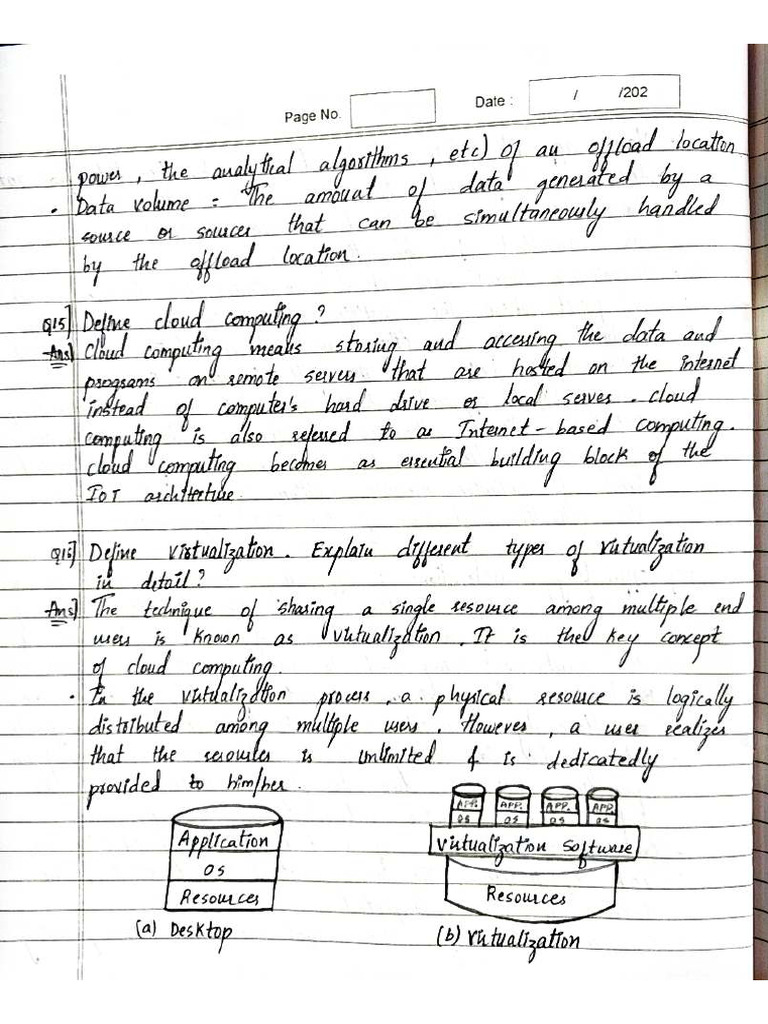 Page No.
Date : / /202
power, the analytical algorithms, etc) of an offload location
• Data volume : The amount of data generated by a
source or sources that can be simultaneously handled
by the offload location.
Q15] Define cloud computing?
Ans] Cloud computing means storing and accessing the data and
programs on remote servers that are hosted on the internet
instead of computer's hard drive or local serves. cloud
computing is also referred to as Internet-based computing.
cloud computing becomes as essential building block of the
IoT architecture
Q16] Define virtualization. Explain different types of virtualization
in detail?
Ans] The technique of sharing a single resource among multiple end
users is known as virtualization. It is the key concept
of cloud computing.
• In the virtualization process, a physical resource is logically
distributed among multiple users. However, a user realizes
that the resources is unlimited & is dedicatedly
provided to him/her.
Application
OS
Resources
(a) Desktop
APP. APP. APP. APP.
OS OS OS OS
Virtualization Software
Resources
(b) Virtualization